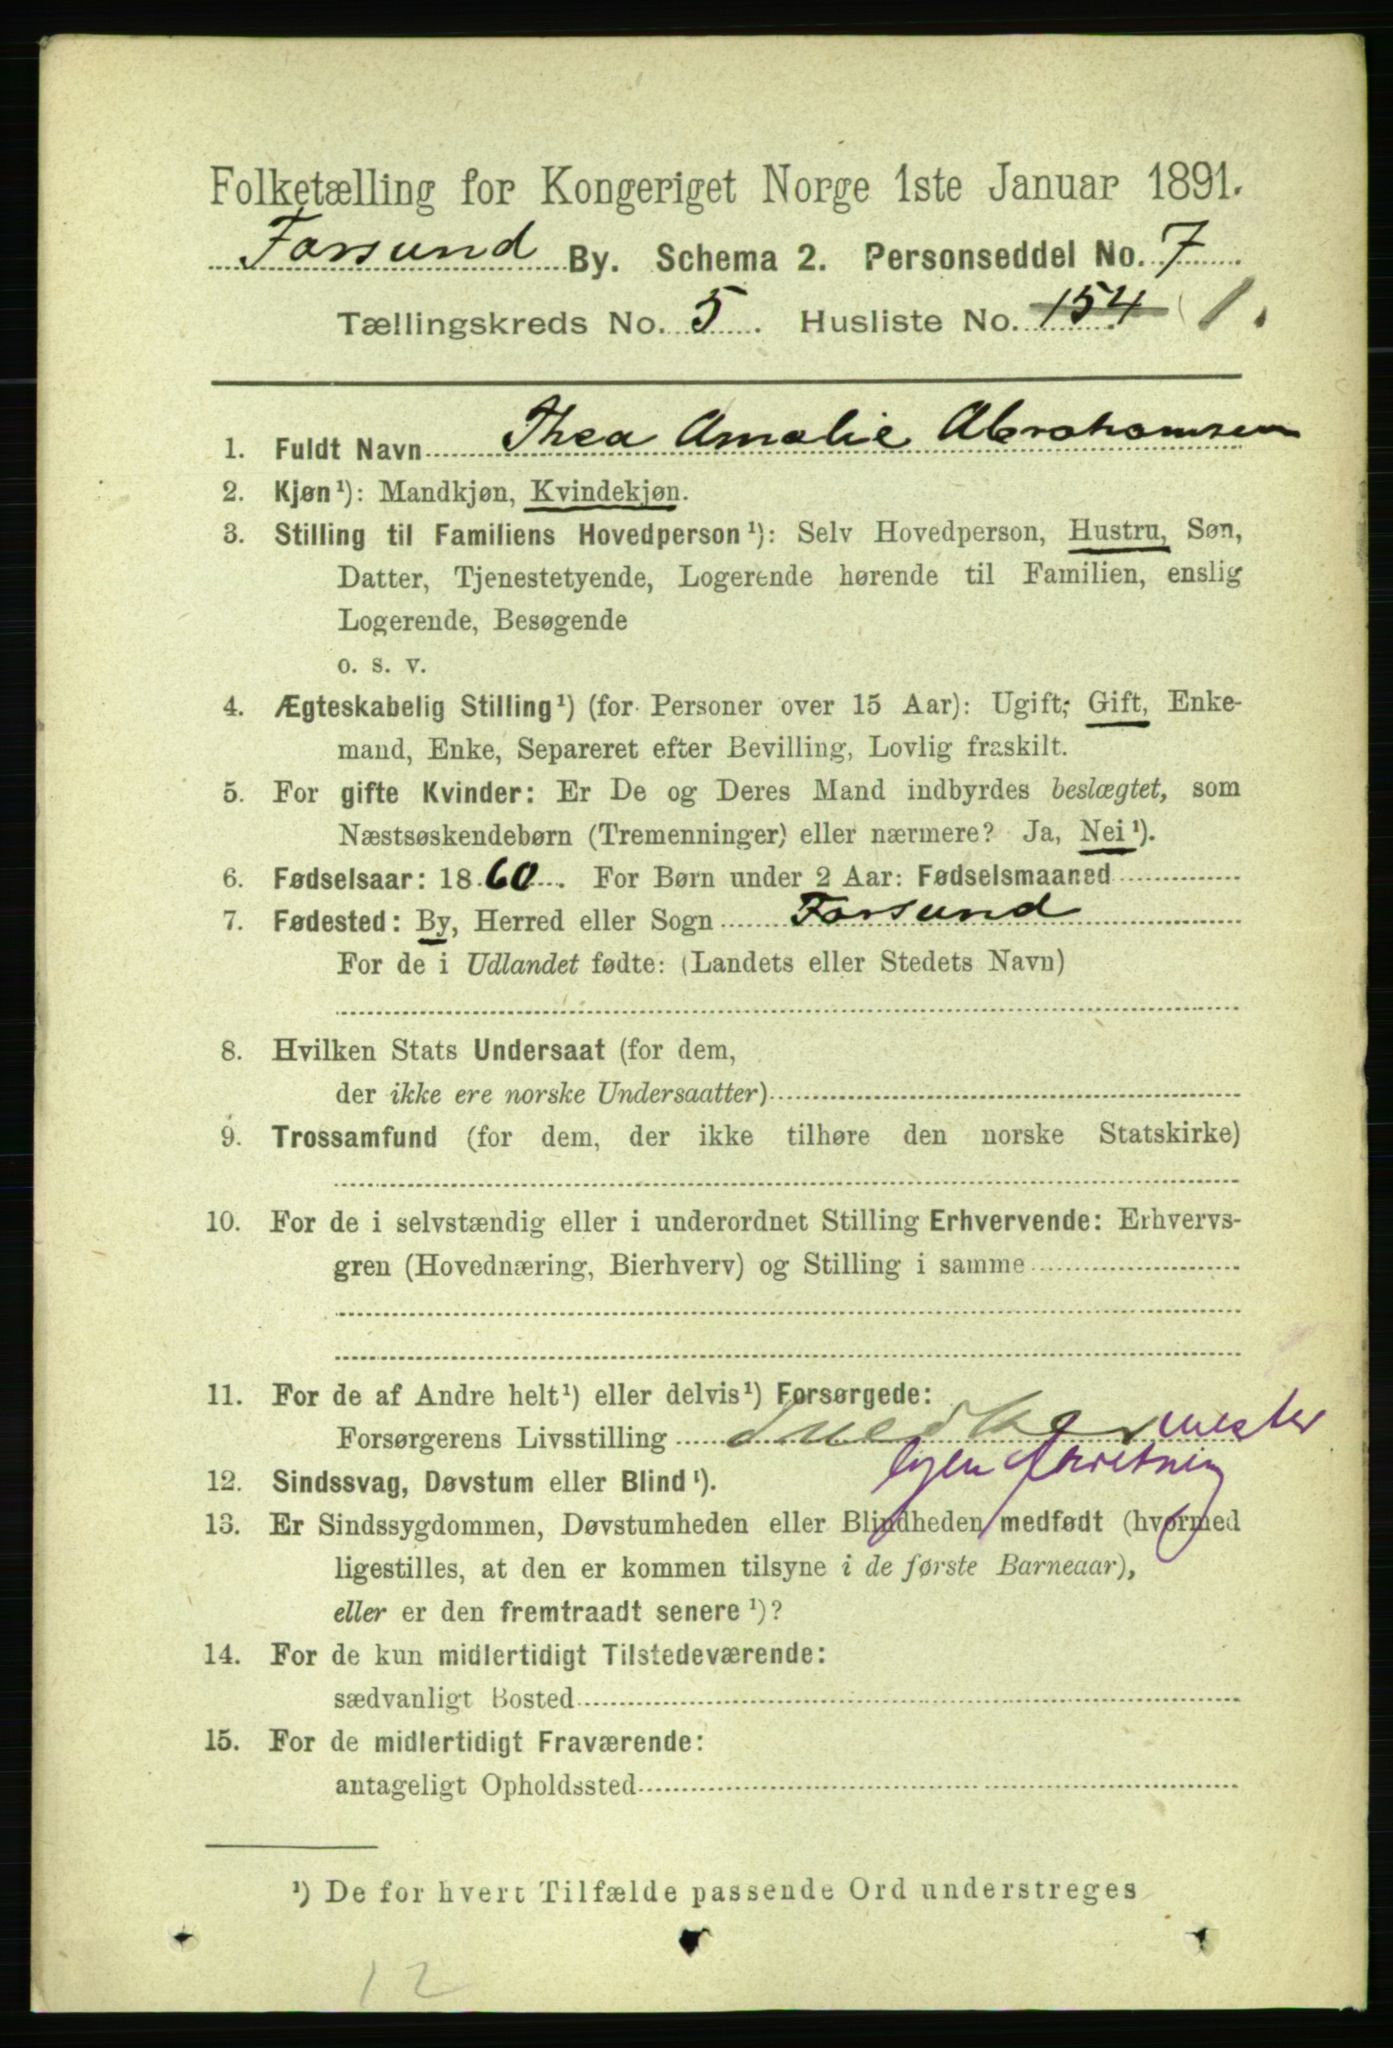 Folketælling for Kongeriget Norge 1ste Januar 1891.
Farsund By. Schema 2. Personseddel No. 7
Tællingskreds No. 5. Husliste No. 154 1.
1. Fuldt Navn Thea Amalie Abrahamsen
2. Kjøn¹): Mandkjøn, Kvindekjøn.
3. Stilling til Familiens Hovedperson¹): Selv Hovedperson, Hustru, Søn,
Datter, Tjenestetyende, Logerende hørende til Familien, enslig
Logerende, Besøgende
o. s. v.
4. Ægteskabelig Stilling¹) (for Personer over 15 Aar): Ugift, Gift, Enke-
mand, Enke, Separeret efter Bevilling, Lovlig fraskilt.
5. For gifte Kvinder: Er De og Deres Mand indbyrdes beslægtet, som
Næstsøskendebørn (Tremenninger) eller nærmere? Ja, Nei¹).
6. Fødselsaar: 1860. For Børn under 2 Aar: Fødselsmaaned
7. Fødested: By, Herred eller Sogn Farsund
For de i Udlandet fødte: (Landets eller Stedets Navn)
8. Hvilken Stats Undersaat (for dem,
der ikke ere norske Undersaatter)
9. Trossamfund (for dem, der ikke tilhøre den norske Statskirke)
10. For de i selvstændig eller i underordnet Stilling Erhvervende: Erhvervs-
gren (Hovednæring, Bierhverv) og Stilling i samme
11. For de af Andre helt¹) eller delvis¹) Forsørgede:
Forsørgerens Livsstilling Snedkermester
egen forretning
12. Sindssvag, Døvstum eller Blind¹).
13. Er Sindssygdommen, Døvstumheden eller Blindheden medfødt (hvormed
ligestilles, at den er kommen tilsyne i de første Barneaar),
eller er den fremtraadt senere¹)?
14. For de kun midlertidigt Tilstedeværende:
sædvanligt Bosted
15. For de midlertidigt Fraværende:
antageligt Opholdssted
¹) De for hvert Tilfælde passende Ord understreges
12